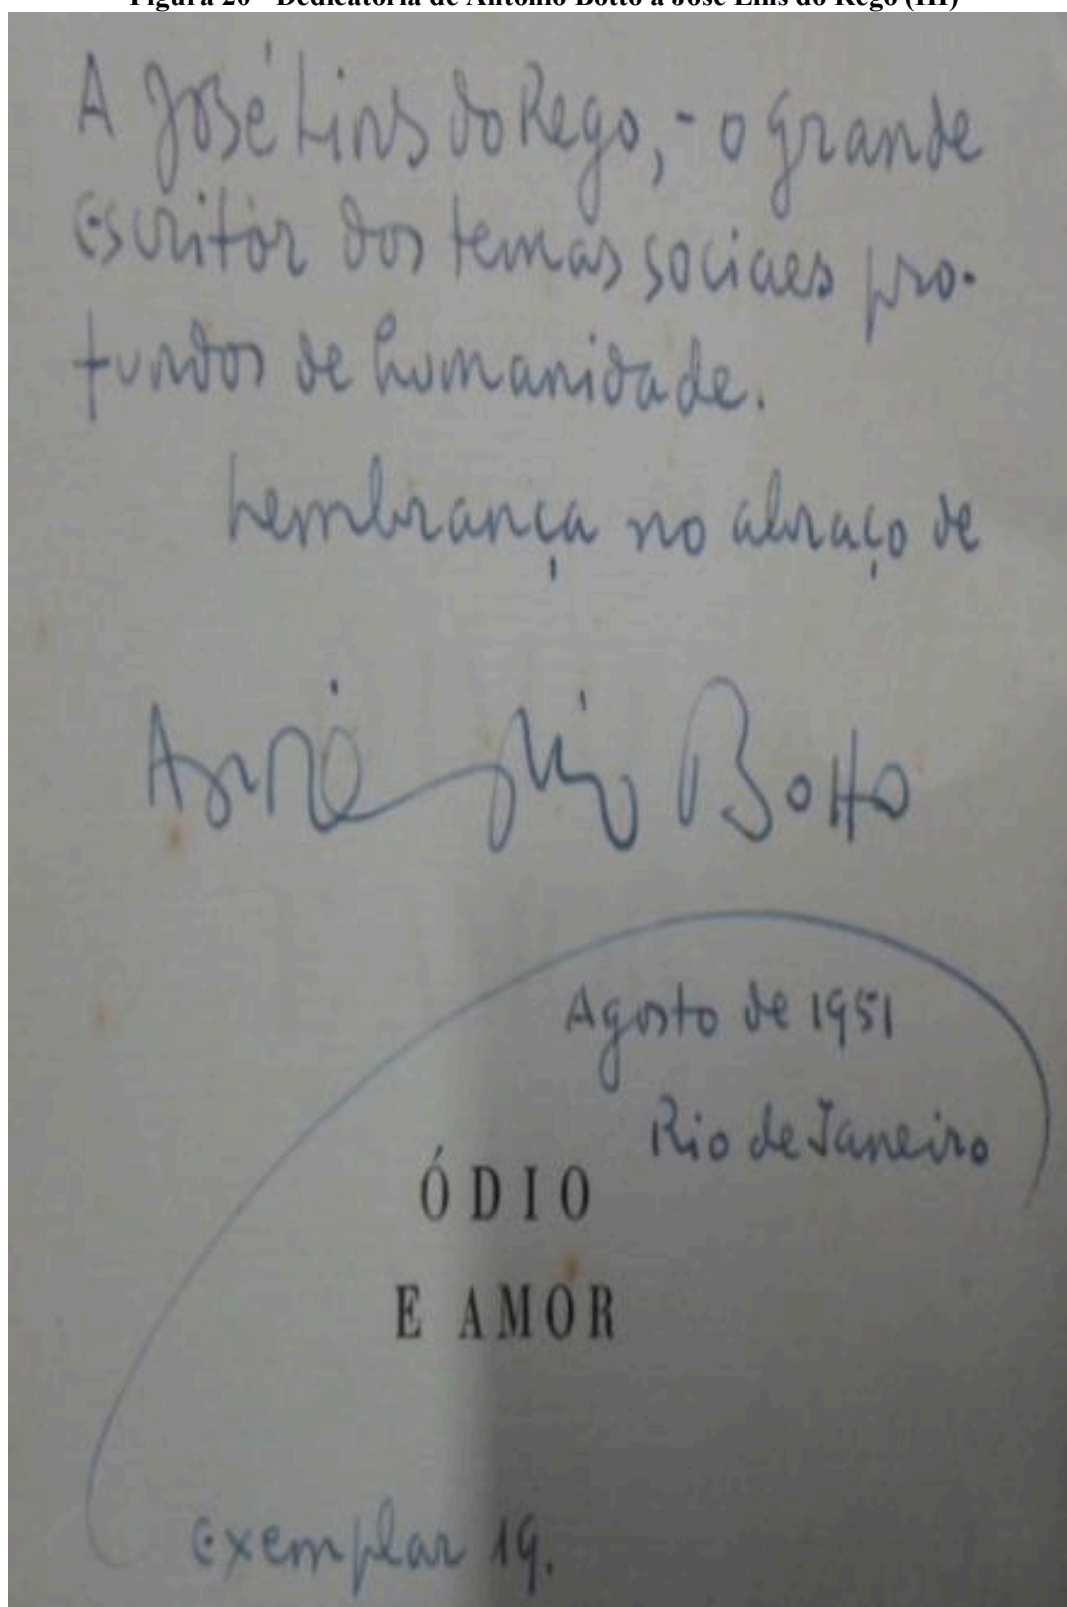 Figura 20 - Dedicatória de António Botto a José Lins do Rego (III)
A José Lins do Rego, - o grande
escritor dos temas sociaes pro-
fundos de humanidade.
Lembrança no abraço de
António Botto
Agosto de 1951
Rio de Janeiro
ÓDIO
E AMOR
exemplar 19.